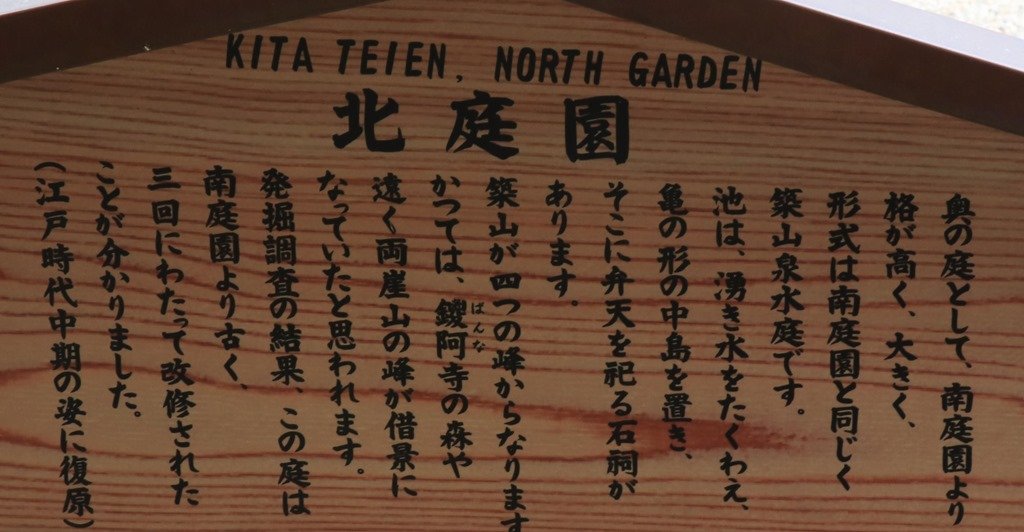 KITA TEIEN, NORTH GARDEN
北庭園
奥の庭として、南庭園より
格が高く、大きく、
形式は南庭園と同じく
築山泉水庭です。
池は、湧き水をたくわえ、
亀の形の中島を置き、
そこに弁天を祀る石祠が
あります。
築山が四つの峰からなります
かつては、鑁阿寺の森や
ばんな
遠く両崖山の峰が借景に
なっていたと思われます。
発掘調査の結果、この庭は
南庭園より古く、
三回にわたって改修された
ことが分かりました。
(江戸時代中期の姿に復原)